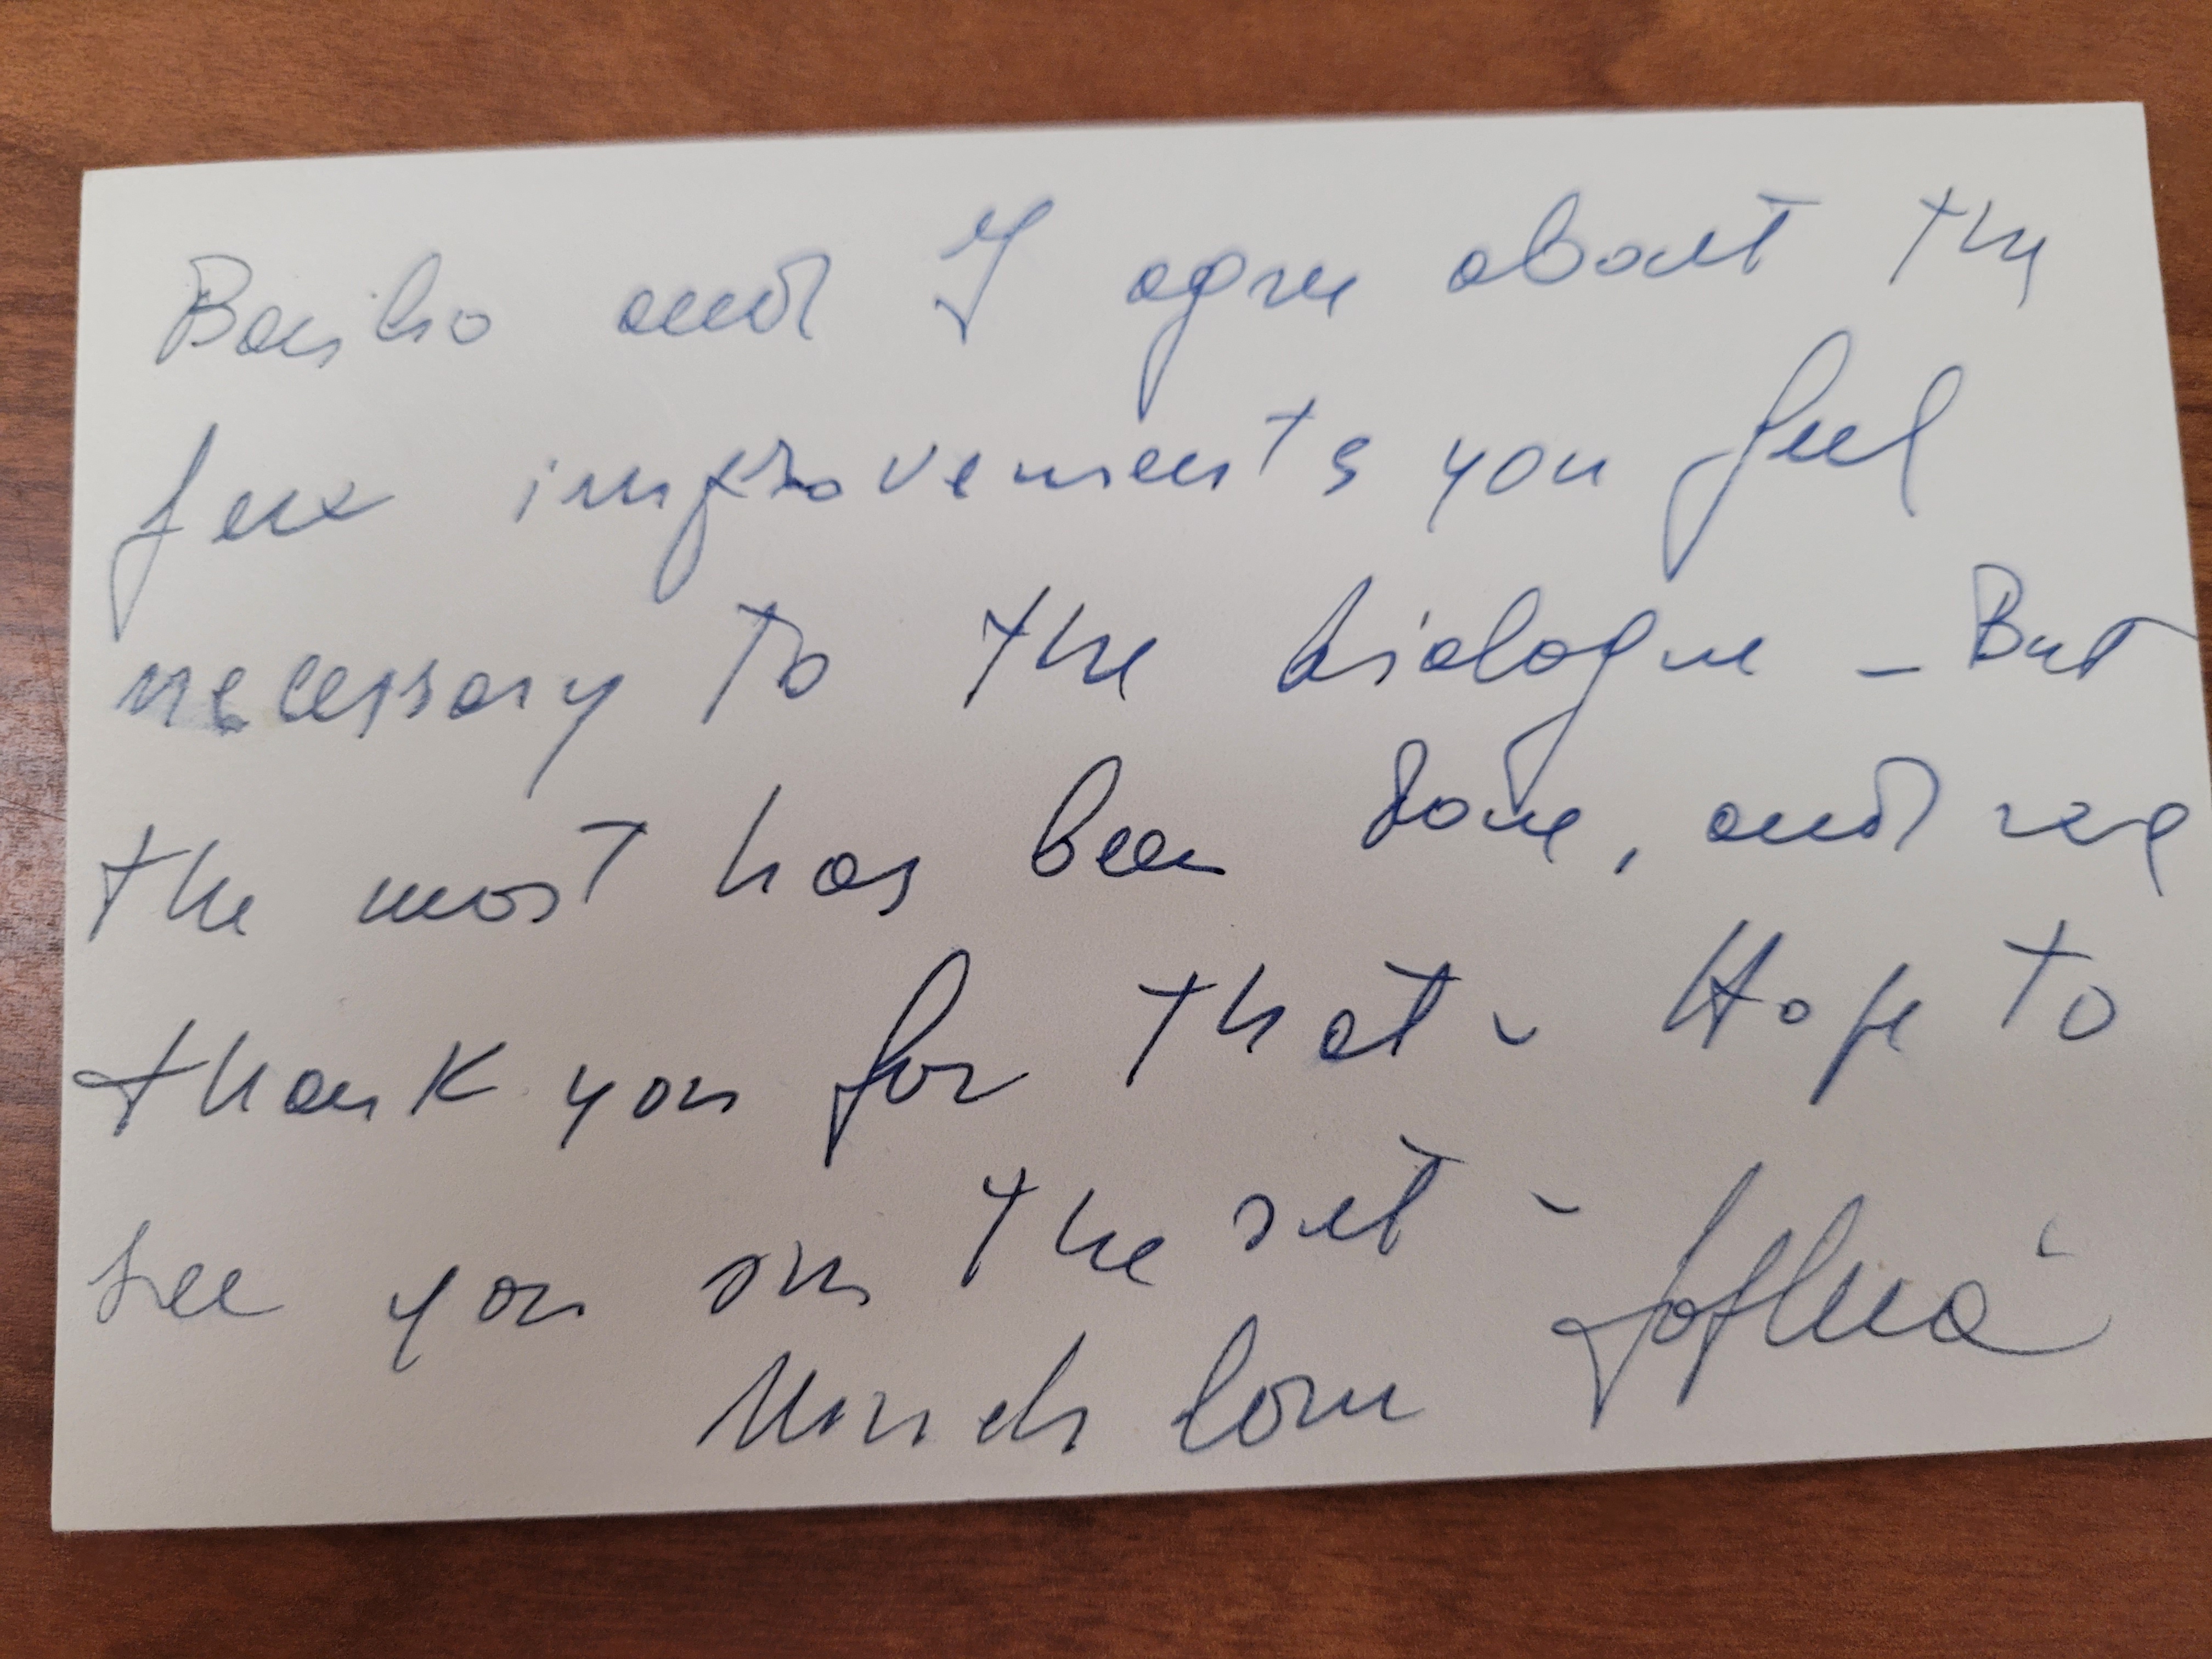 Basilio and I agree about the
few improvements you feel
necessary to the dialogue - But
the most has been done, and we
thank you for that - Hope to
see you on the set -
Much love Sophia